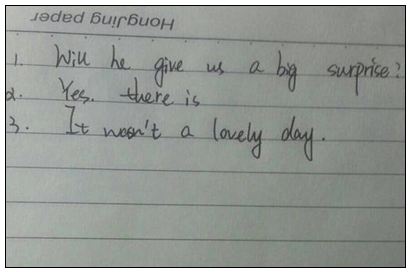 HongJing paper
1. Will he give us a big surprise?
2. Yes. there is
3. It wasn't a lovely day.